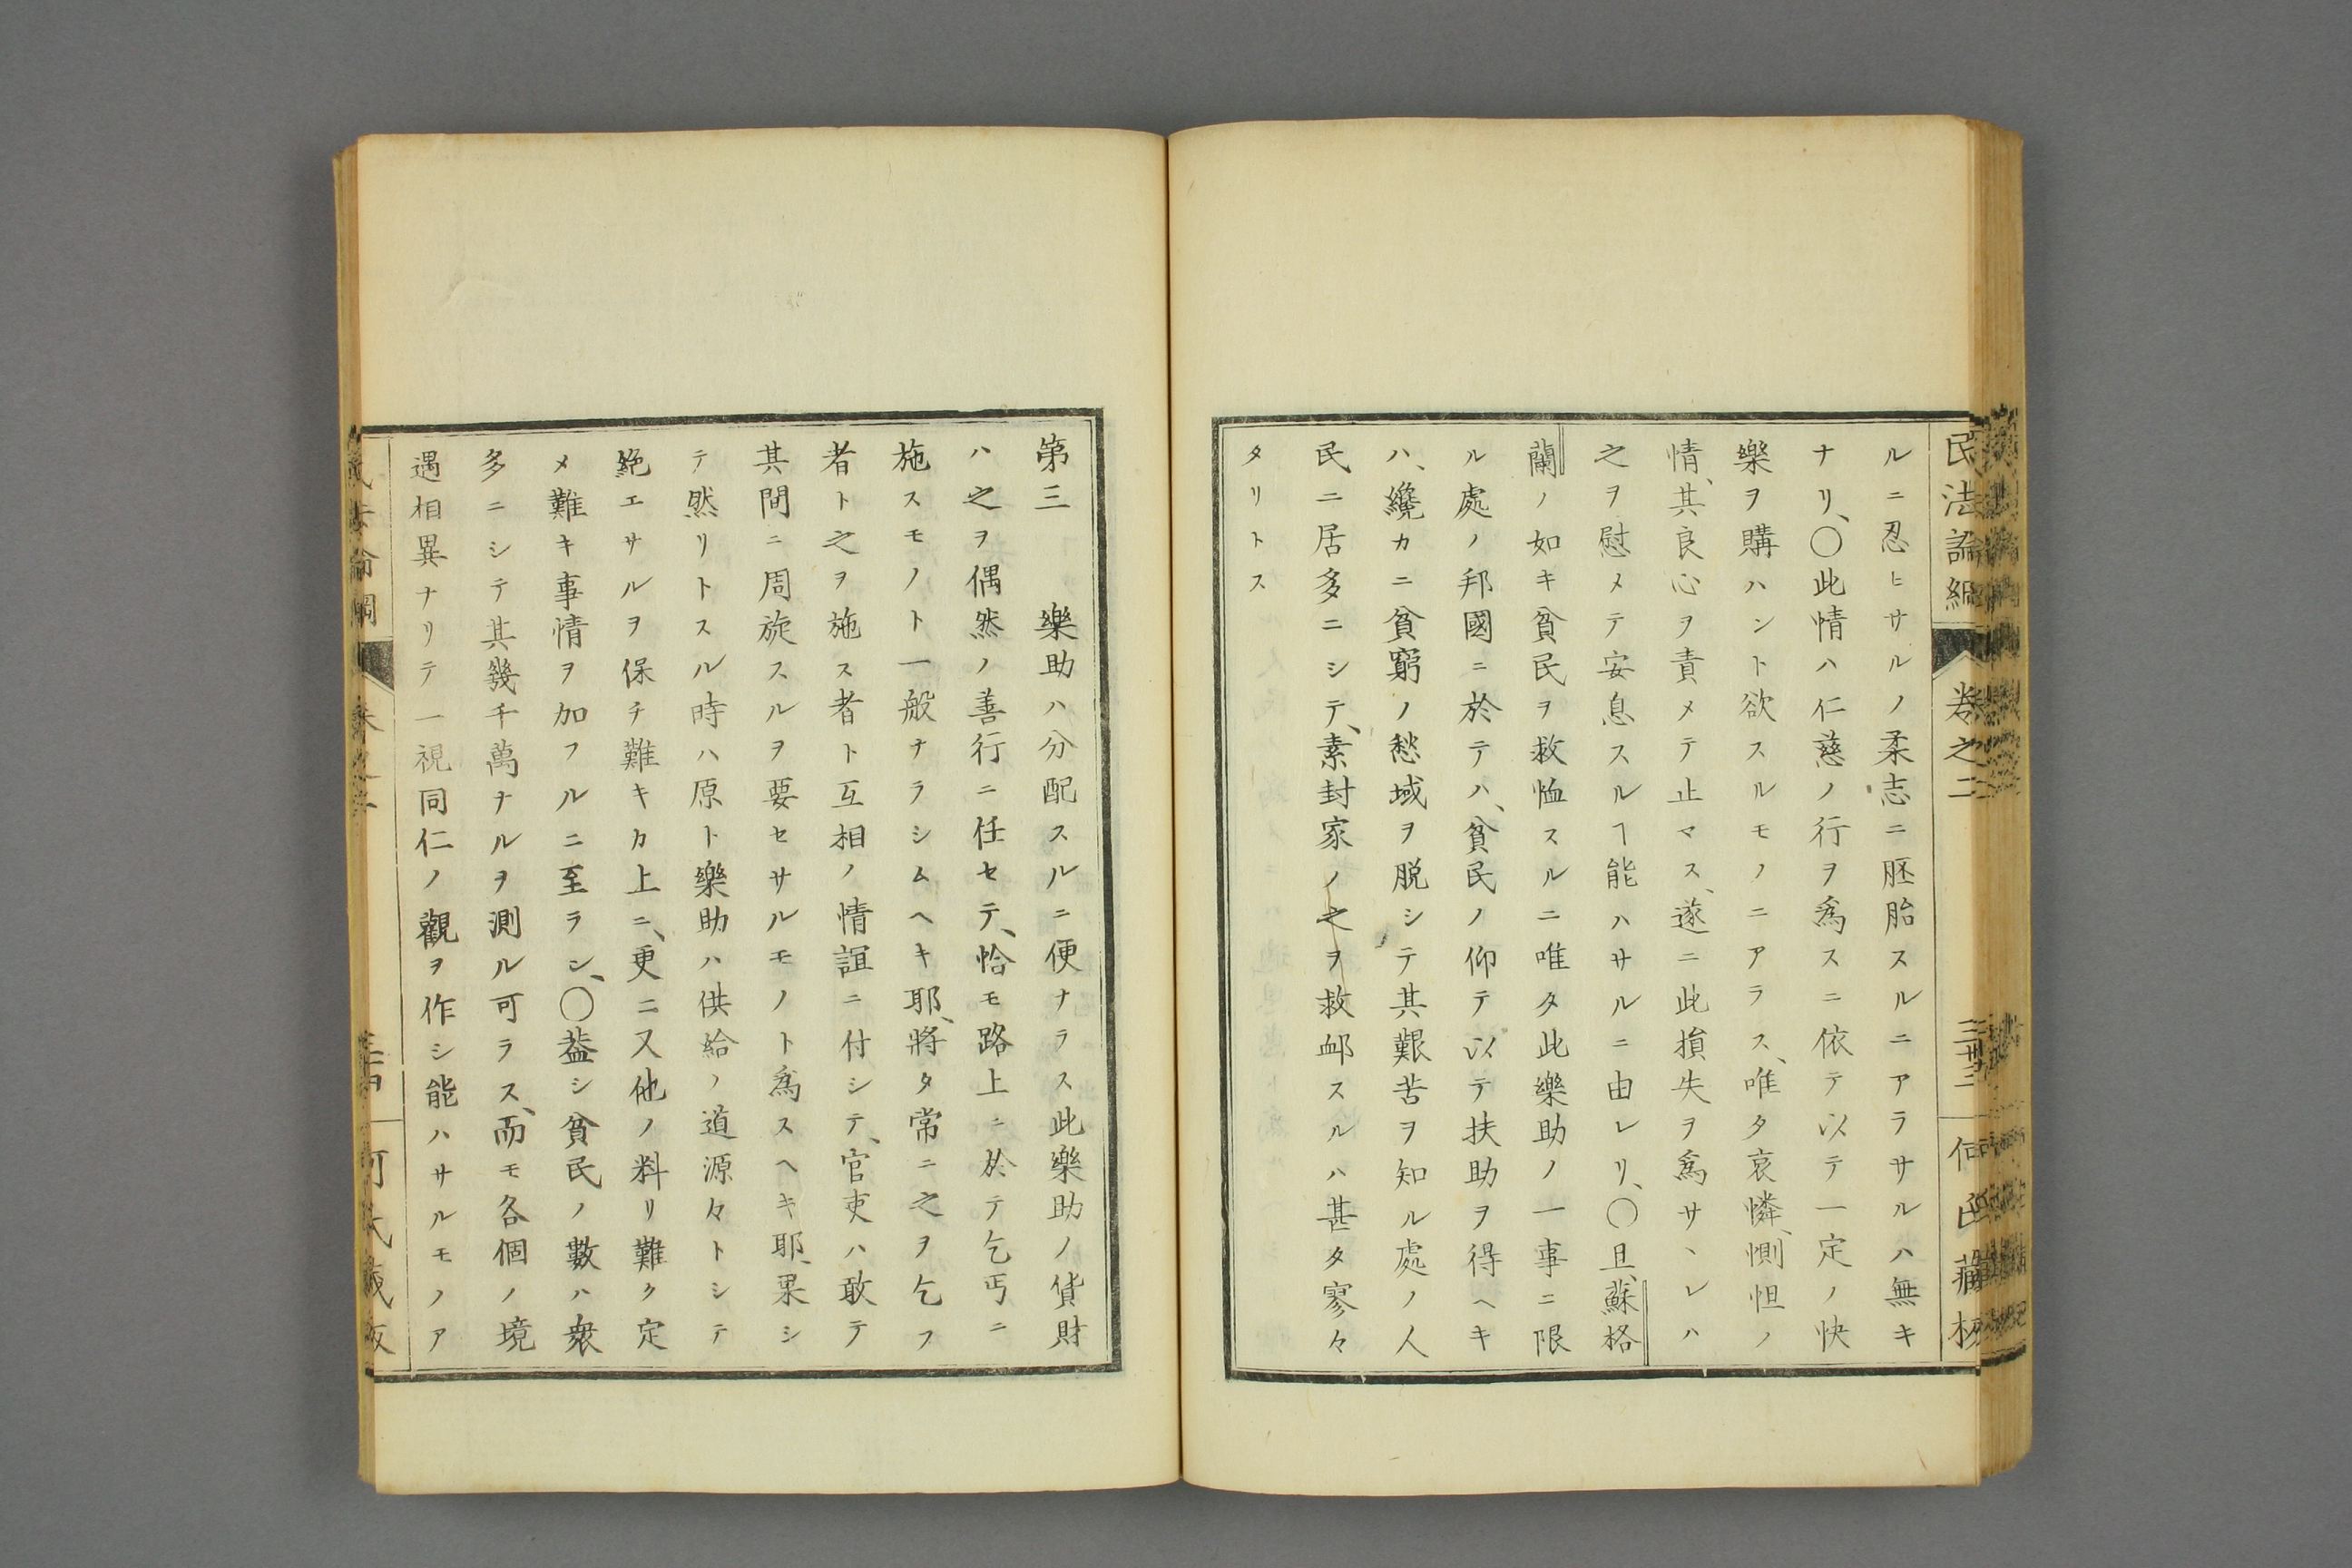 民法論綱 卷之二 三十三 何氏藏板
ルニ忍ヒサルノ柔志ニ胚胎スルニアラサルハ無キ
ナリ、〇此情ハ仁慈ノ行ヲ爲スニ依テ以テ一定ノ快
樂ヲ購ハント欲スルモノニアラス、唯タ哀憐、惻怛ノ
情、其良心ヲ責メテ止マス、遂ニ此損失ヲ爲サヽレハ
之ヲ慰メテ安息スルヿ能ハサルニ由レリ、〇且、蘇格
蘭ノ如キ貧民ヲ救恤スルニ唯タ此樂助ノ一事ニ限
ル處ノ邦國ニ於テハ、貧民ノ仰テ以テ扶助ヲ得ヘキ
ハ、纔カニ貧窮ノ愁域ヲ脱シテ其艱苦ヲ知ル處ノ人
民ニ居多ニシテ、素封家ノ之ヲ救䘏スルハ甚タ寥々
タリトス
第三 樂助ハ分配スルニ便ナラス此樂助ノ貨財
ハ之ヲ偶然ノ善行ニ任セテ、恰モ路上ニ於テ乞丐ニ
施スモノト一般ナラシムヘキ耶、將タ常ニ之ヲ乞フ
者ト之ヲ施ス者ト互相ノ情誼ニ付シテ、官吏ハ敢テ
其間ニ周旋スルヲ要セサルモノト爲スヘキ耶、果シ
テ然リトスル時ハ原ト樂助ハ供給ノ道源々トシテ
絶エサルヲ保チ難キカ上ニ、更ニ又他ノ料リ難ク定
メ難キ事情ヲ加フルニ至ラン、〇蓋シ貧民ノ數ハ衆
多ニシテ其幾千萬ナルヲ測ル可ラス、而モ各個ノ境
遇相異ナリテ一視同仁ノ觀ヲ作シ能ハサルモノア